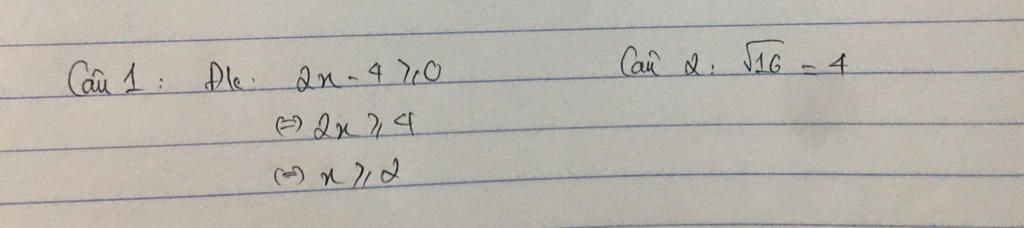 Câu 1 : Đk: 2x - 4 ⩾ 0
⇔ 2x ⩾ 4
⇔ x ⩾ 2
Câu 2: √16 = 4